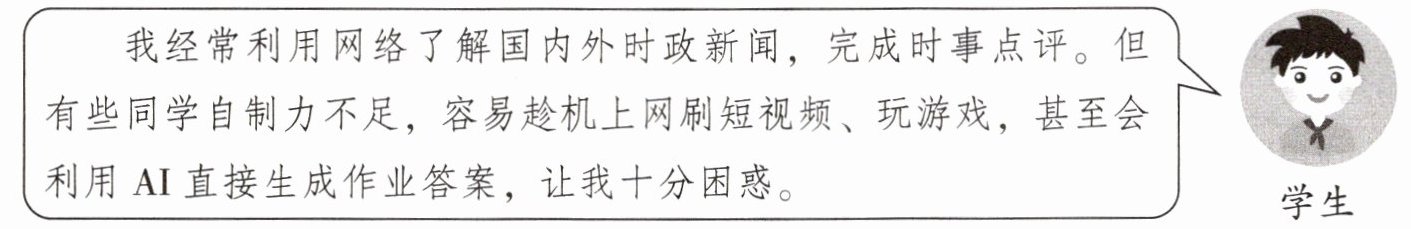 我经常利用网络了解国内外时政新闻，完成时事点评。但
有些同学自制力不足，容易趁机上网刷短视频、玩游戏，甚至会
利用 AI 直接生成作业答案，让我十分困惑。
学生